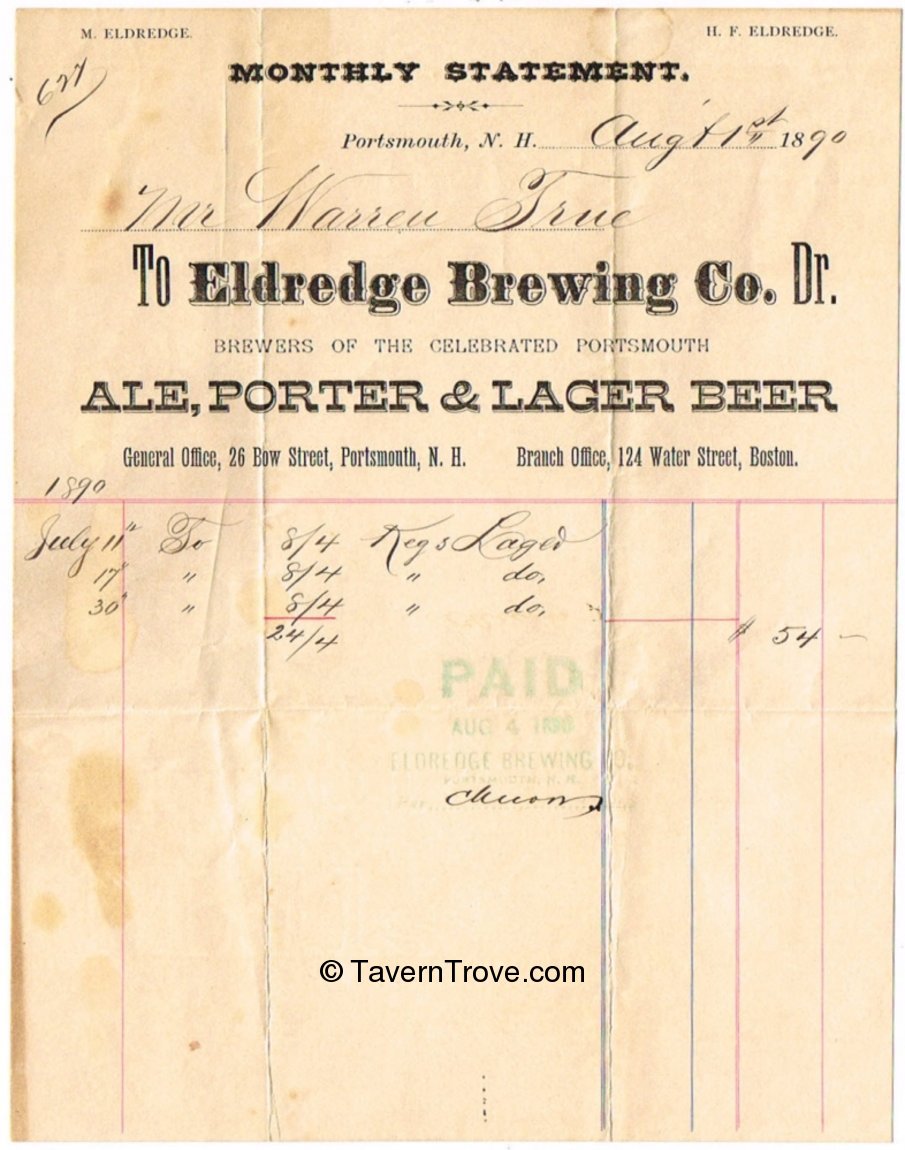 M. ELDREDGE.
H. F. ELDREDGE.
MONTHLY STATEMENT.
627
Portsmouth, N. H. Augt 1st 1890
Mr Warren True
To Eldredge Brewing Co. Dr.
BREWERS OF THE CELEBRATED PORTSMOUTH
ALE, PORTER & LAGER BEER
General Office, 26 Bow Street, Portsmouth, N. H. Branch Office, 124 Water Street, Boston.
1890
July 11" To 8/4 Kegs Lager
17" " 8/4 " do.
30" " 8/4 " do.
24/4 $ 54 —
PAID
AUG 4 1890
ELDREDGE BREWING CO.
PORTSMOUTH, N. H.
© TavernTrove.com